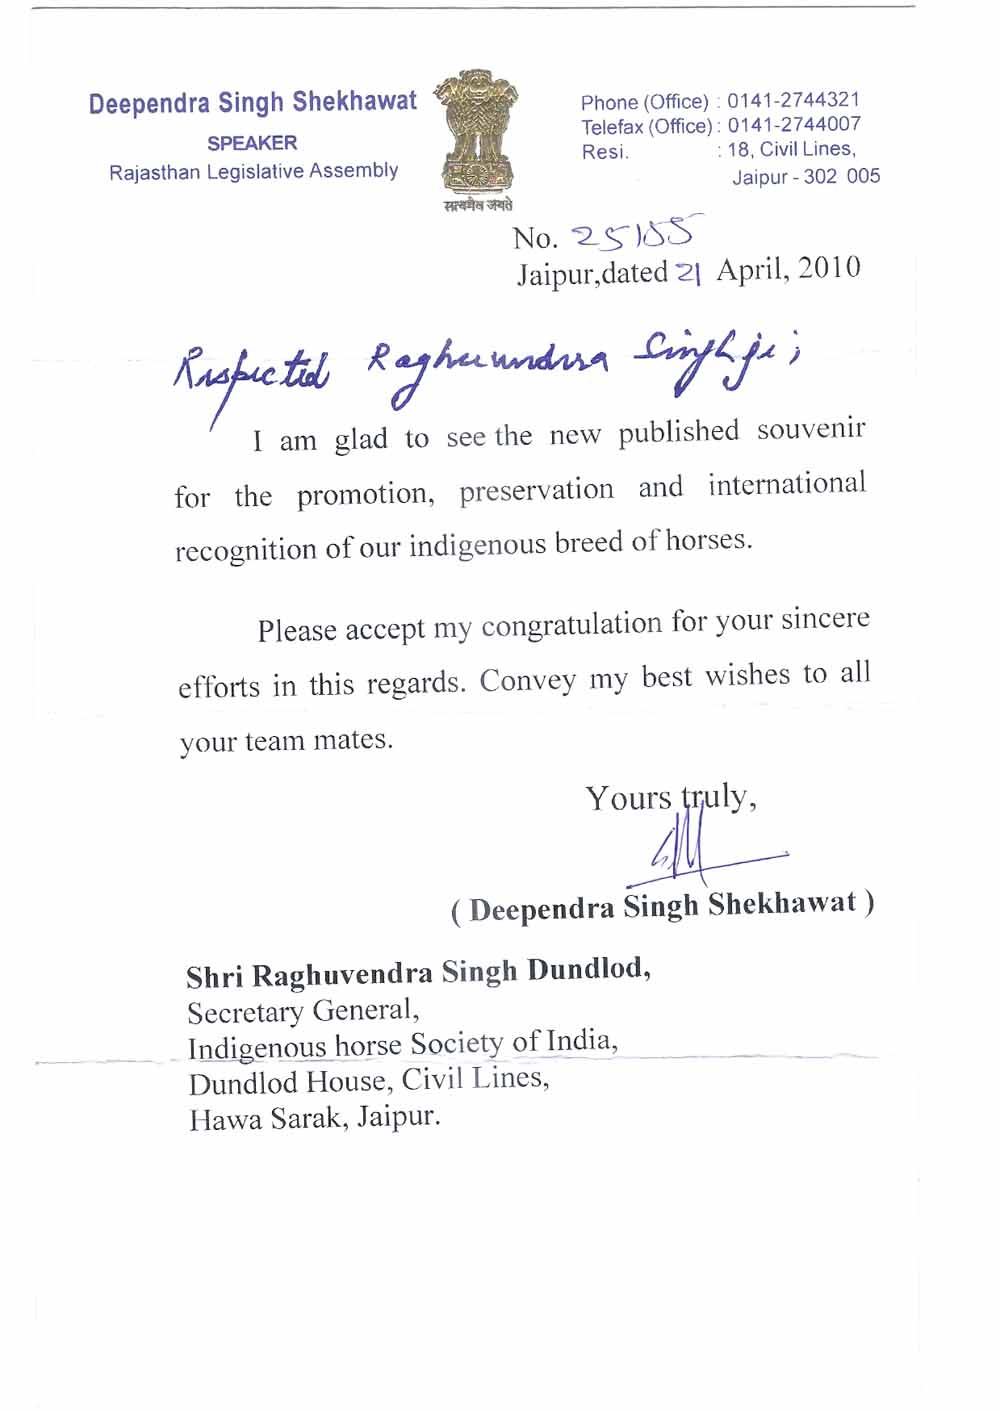 Deependra Singh Shekhawat
SPEAKER
Rajasthan Legislative Assembly
सत्यमेव जयते
Phone (Office) : 0141-2744321
Telefax (Office) : 0141-2744007
Resi. : 18, Civil Lines,
Jaipur - 302 005
No. 25155
Jaipur,dated 21 April, 2010
Respected Raghuvendra Singh ji,
I am glad to see the new published souvenir
for the promotion, preservation and international
recognition of our indigenous breed of horses.
Please accept my congratulation for your sincere
efforts in this regards. Convey my best wishes to all
your team mates.
Yours truly,
( Deependra Singh Shekhawat )
Shri Raghuvendra Singh Dundlod,
Secretary General,
Indigenous horse Society of India,
Dundlod House, Civil Lines,
Hawa Sarak, Jaipur.